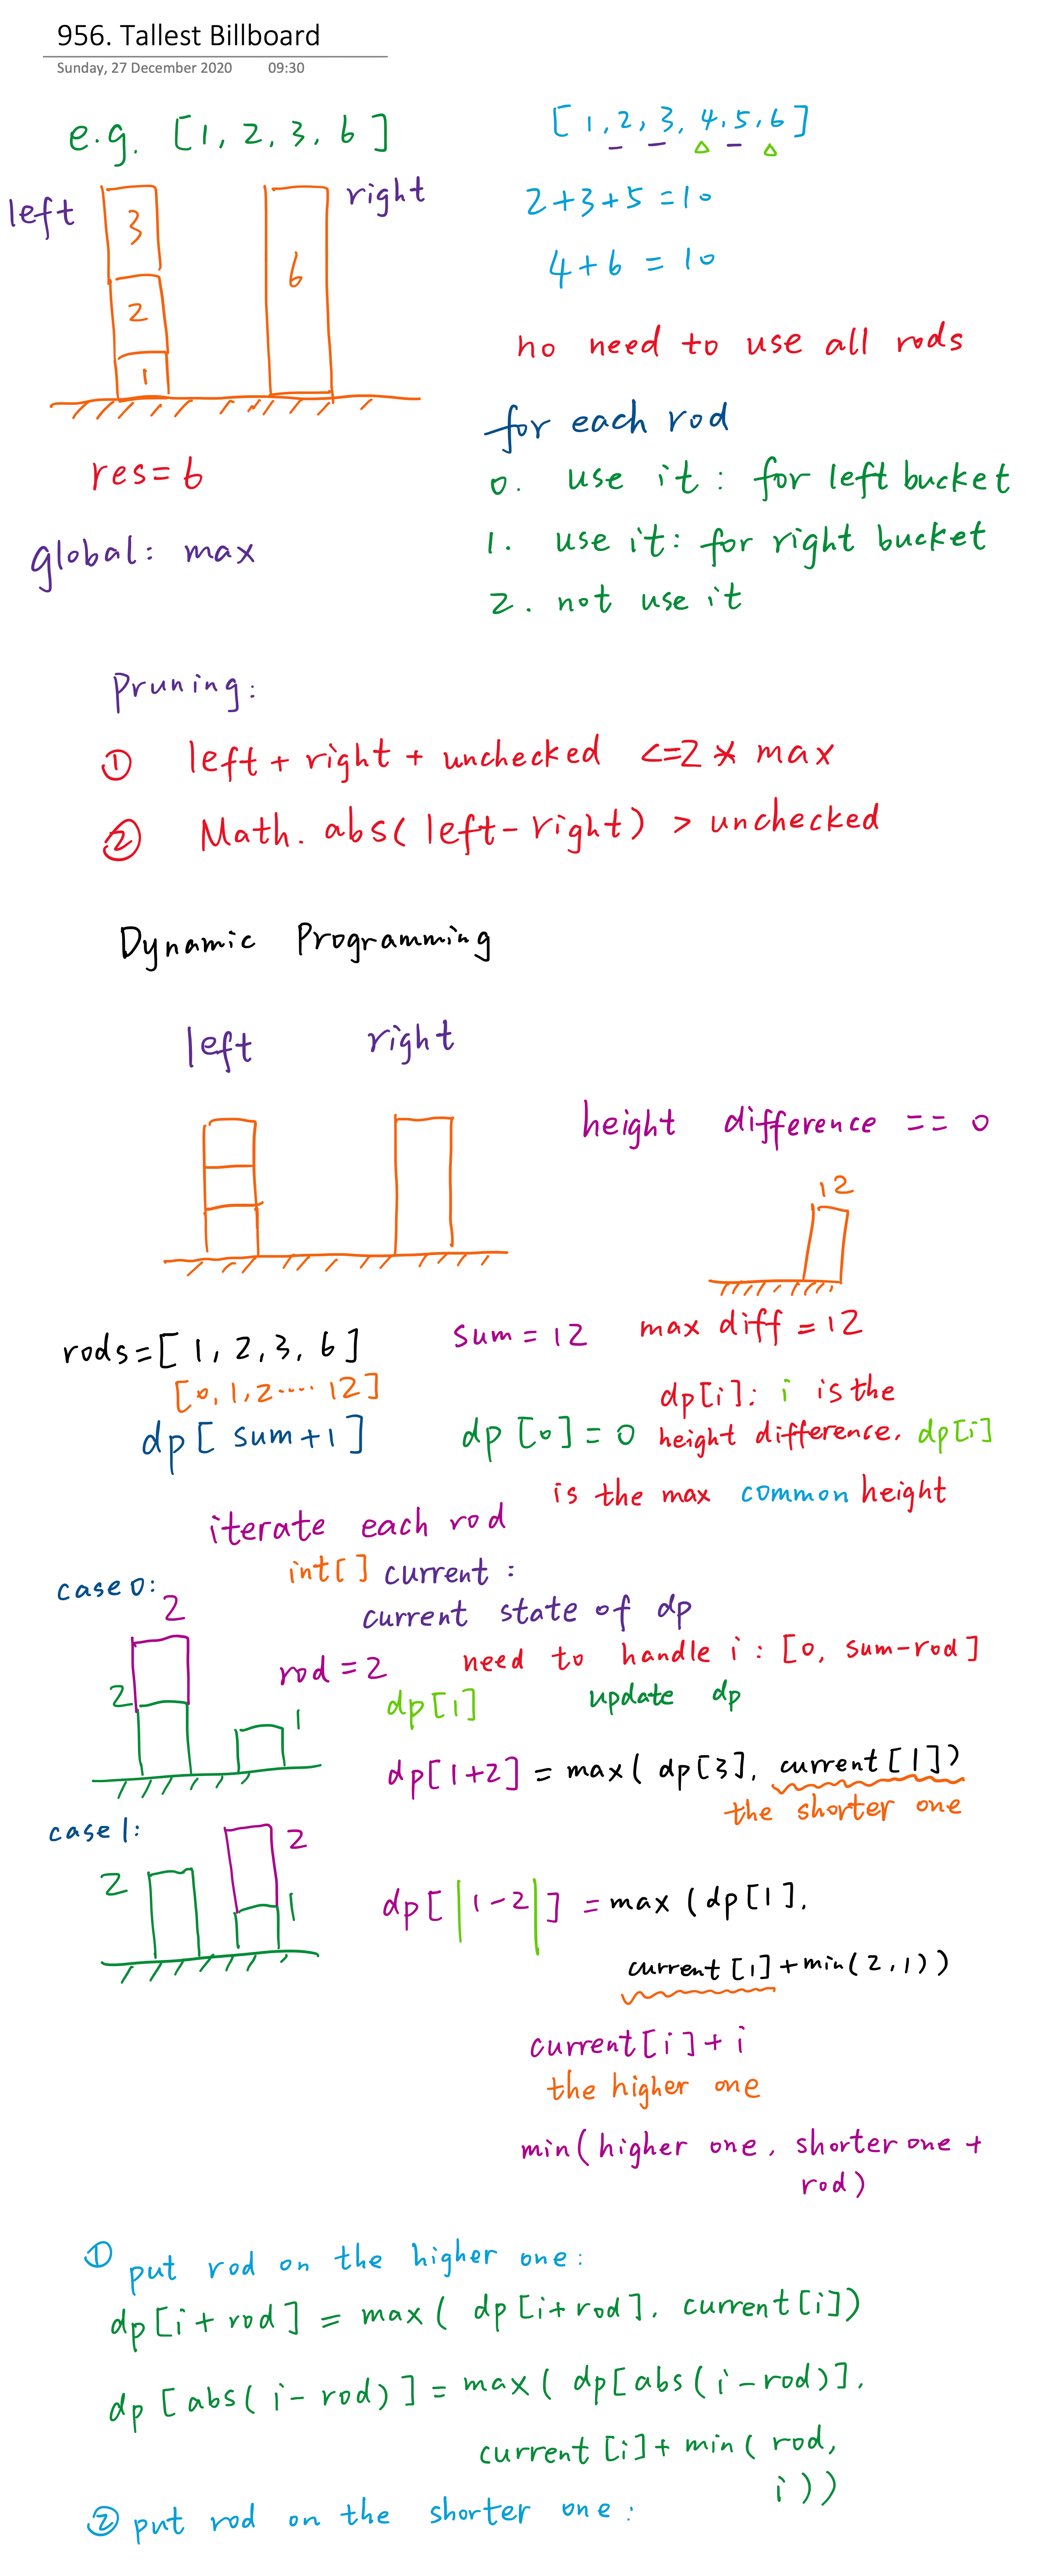 956. Tallest Billboard
Sunday, 27 December 2020 09:30
e.g. [1, 2, 3, 6]
[1, 2, 3, 4, 5, 6]
left
3
2
1
6
right
2+3+5=10
4+6=10
no need to use all rods
for each rod
res=6
0. use it: for left bucket
global: max
1. use it: for right bucket
2. not use it
Pruning:
① left + right + unchecked <=2 * max
② Math.abs(left-right) > unchecked
Dynamic Programming
left right
height difference == 0
12
rods=[1, 2, 3, 6] sum=12 max diff=12
[0, 1, 2.....12]
dp[sum+1] dp[0]=0
dp[i]: i is the
height difference, dp[i]
is the max common height
iterate each rod
int[] current:
current state of dp
case 0:
2
2
1
rod=2
need to handle i: [0, sum-rod]
dp[1] update dp
dp[1+2] = max(dp[3], current[1])
the shorter one
case 1:
2
2
1
dp[|1-2|] = max(dp[1],
current[1]+min(2,1))
current[i]+i
the higher one
min(higher one, shorter one +
rod)
① put rod on the higher one:
dp[i+rod] = max(dp[i+rod], current[i])
dp[abs(i-rod)] = max(dp[abs(i-rod)],
current[i]+min(rod,
i))
② put rod on the shorter one: